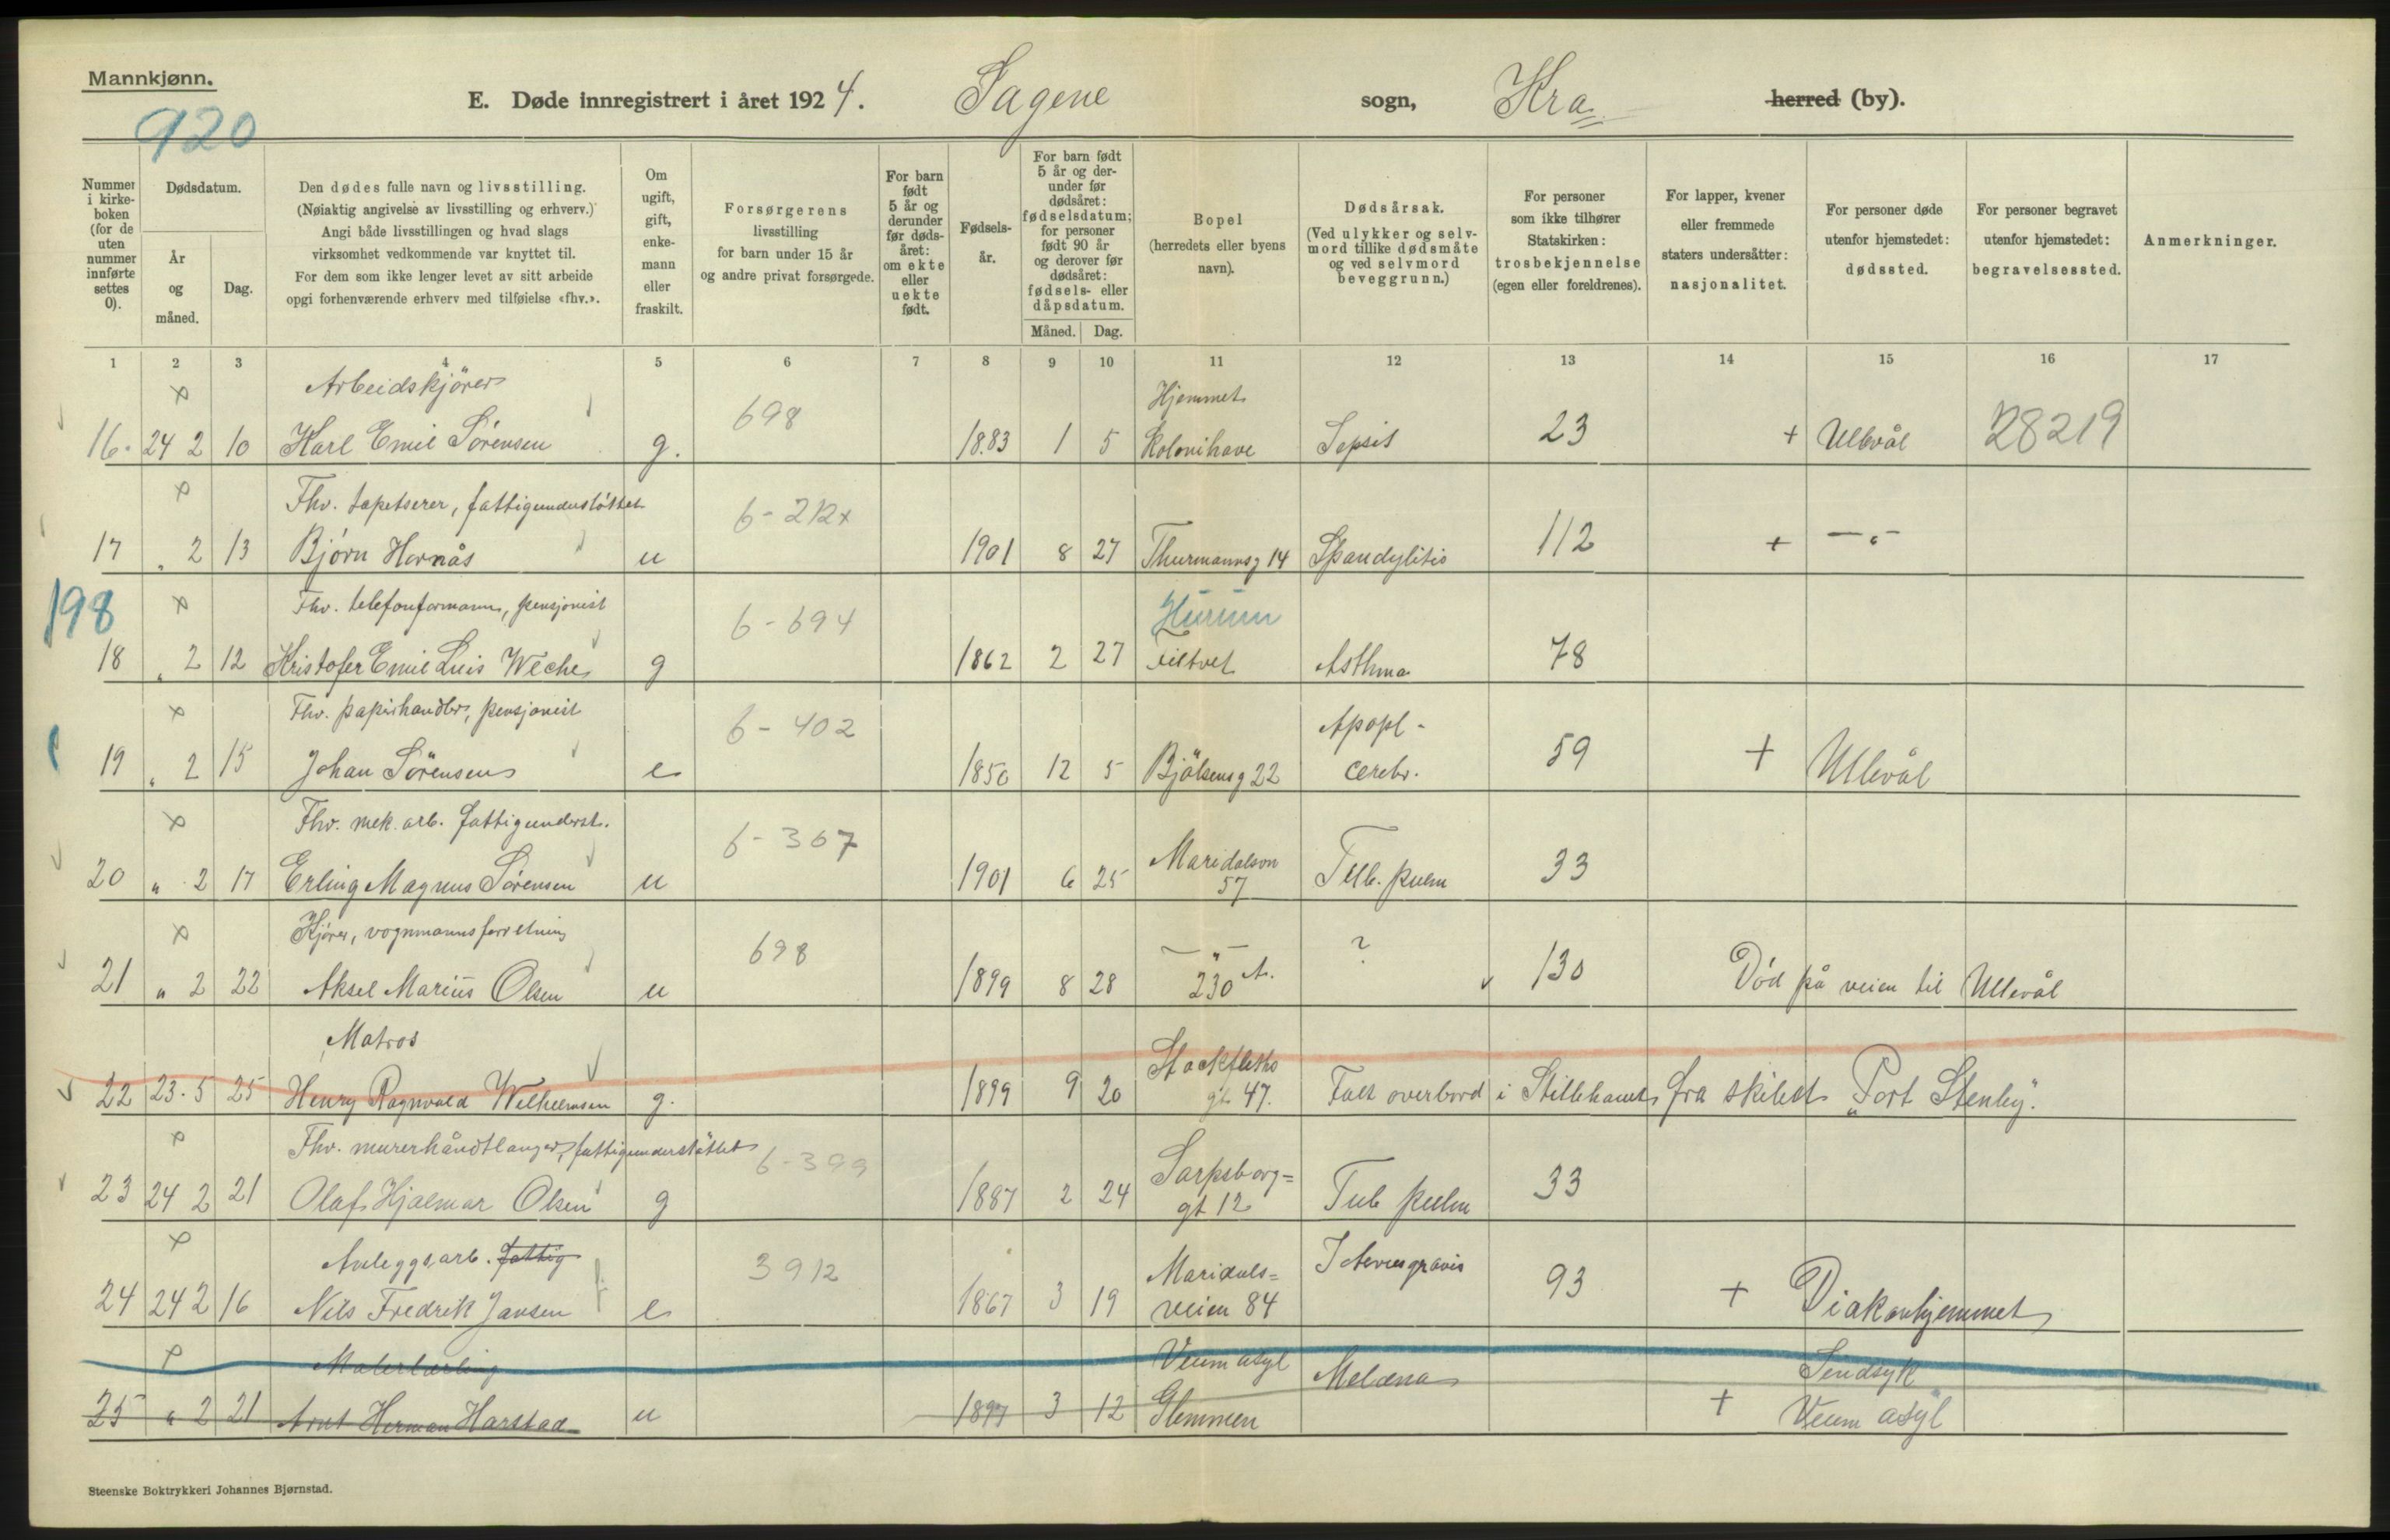 Mannkjønn.
E. Døde innregistrert i året 1924. Sagene sogn, Kra. herred (by).
920
Nummer i kirkeboken (for de uten nummer innførte settes 0).
Dødsdatum.
År og måned.
Dag.
Den dødes fulle navn og livsstilling.
(Nøiaktig angivelse av livsstilling og erhverv.)
Angi både livsstillingen og hvad slags
virksomhet vedkommende var knyttet til.
For dem som ikke lenger levet av sitt arbeide
opgi forhenværende erhverv med tilføielse «fhv.».
Om ugift, gift, enkemann eller fraskilt.
Forsørgerens
livsstilling
for barn under 15 år
og andre privat forsørgede.
For barn født 5 år og derunder før dødsåret: om ekte eller uekte født.
Fødselsår.
For barn født 5 år og derunder før dødsåret: fødselsdatum; for personer født 90 år og derover før dødsåret: fødsels- eller dåpsdatum.
Måned. Dag.
Bopel
(herredets eller byens
navn).
Dødsårsak.
(Ved ulykker og selvmord tillike dødsmåte og ved selvmord beveggrunn.)
For personer
som ikke tilhører
Statskirken:
trosbekjennelse
(egen eller foreldrenes).
For lapper, kvener
eller fremmede
staters undersåtter:
nasjonalitet.
For personer døde
utenfor hjemstedet:
dødssted.
For personer begravet
utenfor hjemstedet:
begravelsessted.
Anmerkninger.
1 2 3 4 5 6 7 8 9 10 11 12 13 14 15 16 17
x Arbeidskjörer 698 Hjemmet
16. 24 2 10 Karl Emil Sörensen g. 1883 1 5 Kolonihave Sepsis 23 + Ullevål 28219
x Fhv. tapetserer, fattigunderstöttet 6-212x
17 " 2 13 Bjørn Hornås u 1901 8 27 Thurmannsg 14 Spandylitis 112 + — " —
198 x Fhv. telefonformann, pensjonist 6-694 Hurum
18 " 2 12 Kristofer Emil Luis Weche g 1862 2 27 Filtvet Asthma 78
x Fhv. papirhandler, pensjonist 6-402 Apopl-
19 " 2 15 Johan Sörensen e 1850 12 5 Bjölseng 22 cerebr. 59 + Ullevål
x Fhv. mek. arb. fattigunderst. 6-367 Maridalsvn
20 " 2 17 Erling Magnus Sörensen u 1901 6 25 57 Tub. pulm 33
x Kjörer, vognmannsforretning 698 — " — ?
21 " 2 22 Aksel Marius Olsen u 1899 8 28 230 A. 130 Död på veien til Ullevål
Matros Stockfleths
22 23.5 25 Henry Ragnvald Wilhelmsen g. 1899 9 20 gt 47. Falt overbord i Stillehavet fra skibet "Port Stenley".
x Fhv. murerhåndtlanger, fattigunderstöttet 6-399 Sarpsborg=
23 24 2 21 Olaf Hjalmar Olsen g 1887 2 24 gt 12 Tub pulm 33
x Anleggsarb. fattig 3912 Maridals= Icterus gravis
24 24 2 16 Nils Fredrik Jansen e 1867 3 19 veien 84 93 + Diakonhjemmet
x Malerlærling Veum asyl Melæna Sendsyk
25 " 2 21 Arnt Herman Harstad u 1897 3 12 Glemmen + Veum asyl
Steenske Boktrykkeri Johannes Bjørnstad.